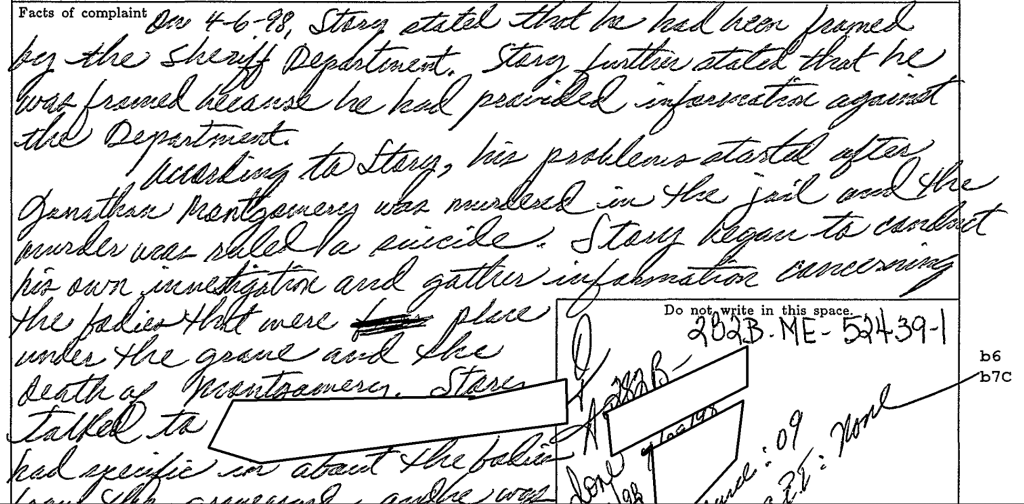 Facts of complaint On 4-6-98, Story stated that he had been framed
by the Sheriff Department. Story further stated that he
was framed because he had provided information against
the Department.
According to Story, his problems started after
Jonathan Montgomery was murdered in the jail and the
murder was ruled a suicide. Story began to conduct
his own investigation and gather information concerning
the bodies that were place
under the grave and the
death of Montgomery. Story
talked to
had specific in about the bodies
from the graveyard, and he was
Do not write in this space.
282B-ME-52439-1
282B-
: 09
: None
b6
b7C